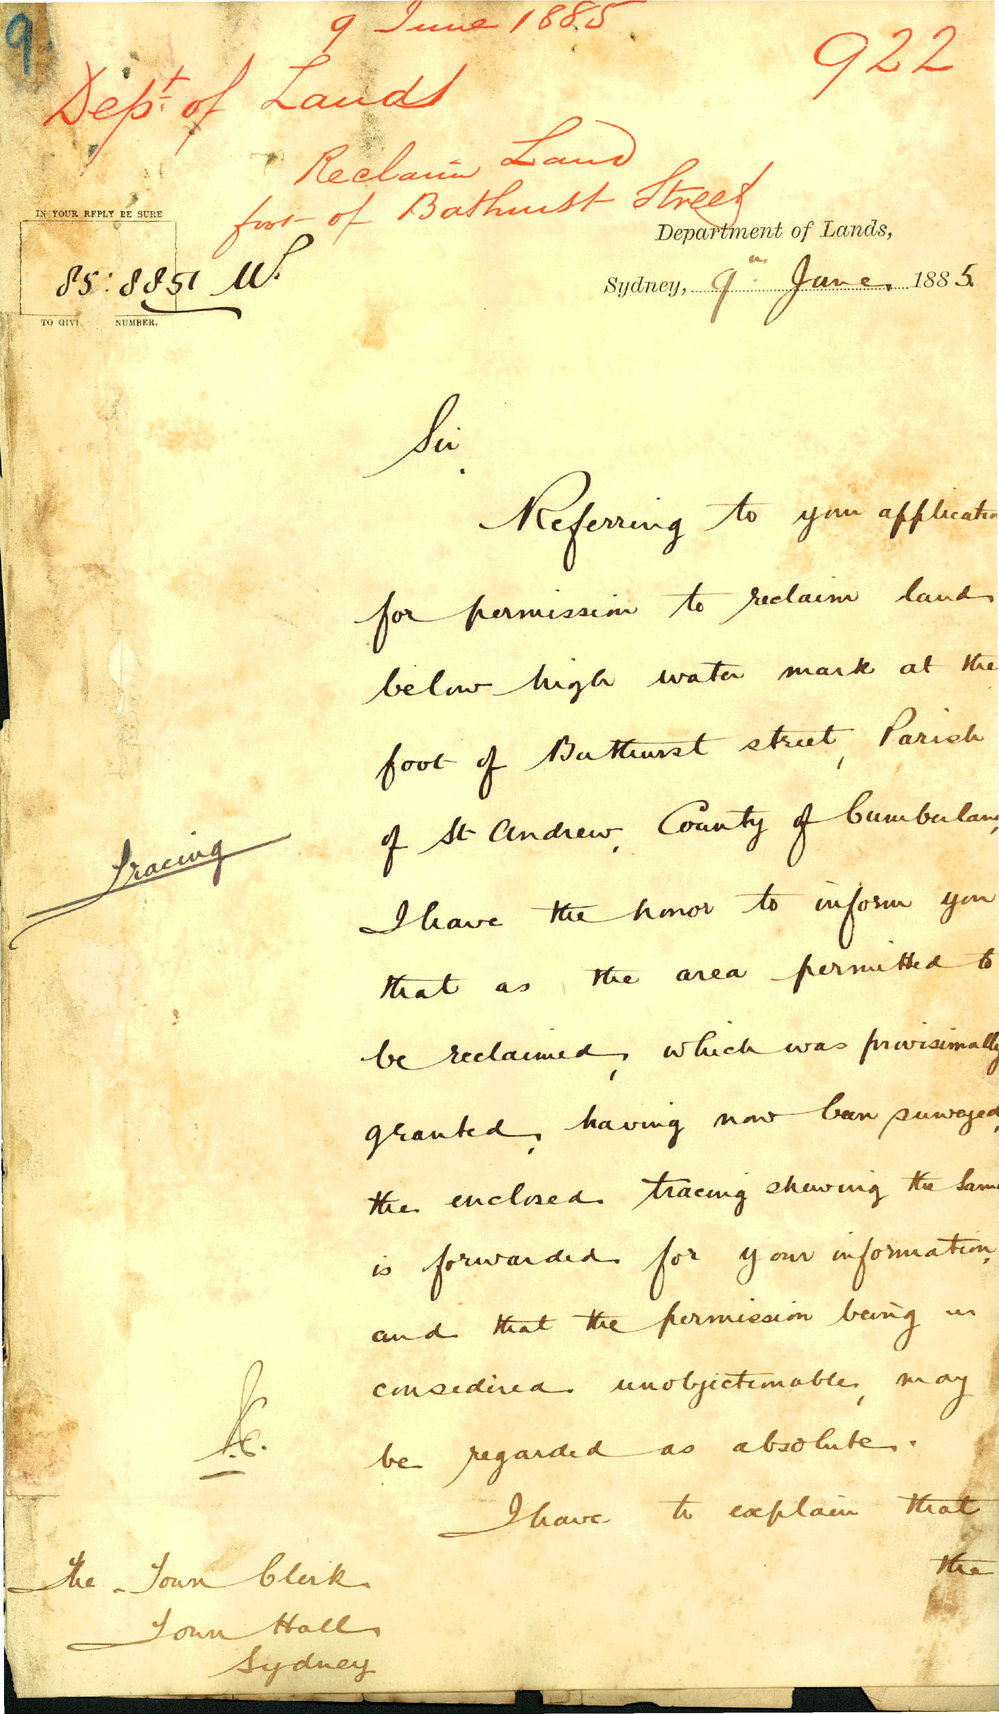 9.
9 June 1885
922
Dept. of Lands
Reclaim Land
foot of Bathurst Street
IN YOUR REPLY BE SURE
85: 8851
TO GIVE NUMBER.
Department of Lands,
Sydney, 9th June 1885.
Sir
Referring to your application
for permission to reclaim land
below high water mark at the
foot of Bathurst street, Parish
of St Andrew, County of Cumberland,
Tracing
I have the honor to inform you
that as the area permitted to
be reclaimed, which was provisionally
granted, having now been surveyed,
the enclosed tracing shewing the same
is forwarded for your information,
and that the permission being un
considered unobjectionable, may
be regarded as absolute.
I have to explain that
the
The Town Clerk
Town Hall
Sydney